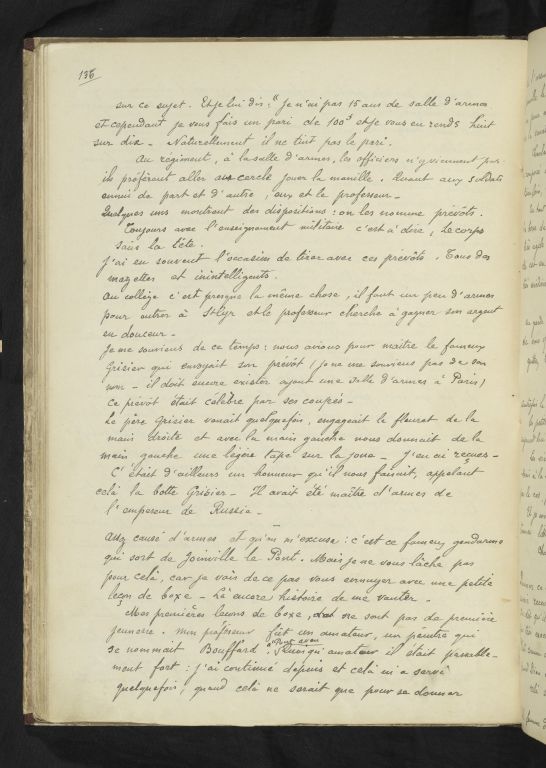 136
sur ce sujet. Et je lui dis: "Je n'ai pas 15 ans de salle d'armes
et cependant je vous fais un pari de 100 et je vous en rends huit
sur dix - Naturellement il ne tint pas le pari.
Au régiment, à la salle d'armes, les officiers n'y viennent pas.
ils préfèrent aller au cercle jouer la manille. Quant aux soldats
ennui de part et d'autre, eux et le professeur -
Quelques uns montrent des dispositions: on les nomme prévôts.
Toujours avec l'enseignement militaire c'est à dire, le corps
sans la tête.
J'ai eu souvent l'occasion de tirer avec ces prévôts. Tous des
mazettes et inintelligents.
Au collège c'est presque la même chose, il faut un peu d'armes
pour entrer à St Cyr et le professeur cherche à gagner son argent
en douceur -
Je me souviens de ce temps: nous avions pour maître le fameux
Grisier qui envoyait son prévôt (je ne me souviens pas de son
nom - il doit encore exister ayant une salle d'armes à Paris)
ce prévôt était célèbre par ses coupés -
Le père Grisier venait quelquefois, engageait le fleuret de la
main droite et avec la main gauche nous donnait de la
main gauche une légère tape sur la joue - J'en ai reçues -
C'était d'ailleurs un honneur qu'il nous faisait, appelant
celà la botte Grisier - Il avait été maître d'armes de
l'empereur de Russie -
Assez causé d'armes et qu'on m'excuse: c'est ce fameux gendarme
qui sort de Joinville le Pont. Mais je ne vous lâche pas
pour celà, car je vais de ce pas vous ennuyer avec une petite
leçon de boxe - Là encore histoire de me vanter -
Mes premières leçons de boxe, ne sont pas de première
jeunesse. Mon professeur fut un amateur, un peintre qui
se nommait Bouffard. Quoiqu'amateur il était passable-
ment fort: j'ai continué depuis et celà m'a servi
quelquefois, quand celà ne serait que pour se donner